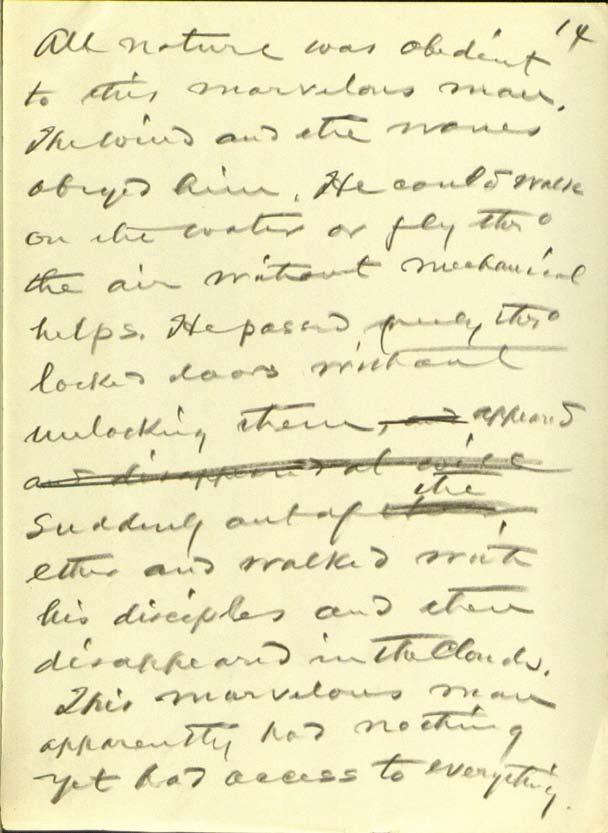 14
All nature was obedient
to this marvelous man.
The wind and the waves
obeyed him. He could walk
on the water or fly thro
the air without mechanical
helps. He passed freely thro
locked doors without
unlocking them, and appeared
and disappeared at will
suddenly out of the
ether and walked with
his disciples and then
disappeared in the Clouds.
This marvelous man
apparently had nothing
yet had access to everything.